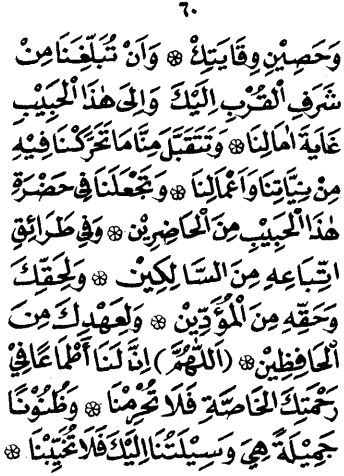 ٦٠
وَحَصِيْنِ وِقَايَتِكْ ۞ وَاَنْ تُبَلِّغَنَا مِنْ
شَرَفِ الْقُرْبِ اِلَيْكَ وَاِلٰى هٰذَا الْحَبِيْبِ
غَايَةَ اٰمَالِنَا ۞ وَتَتَقَبَّلَ مِنَّا مَا تَحَرَّكْنَا فِيْهِ
مِنْ نِيَّاتِنَا وَاَعْمَالِنَا ۞ وَتَجْعَلَنَا فِيْ حَضْرَةِ
هٰذَا الْحَبِيْبِ مِنَ الْحَاضِرِيْنْ ۞ وَفِيْ طَرَائِقِ
اتِّبَاعِهِ مِنَ السَّالِكِيْنْ ۞ وَلِحَقِّكَ
وَحَقِّهِ مِنَ الْمُؤَدِّيْنْ ۞ وَلِعَهْدِكَ مِنَ
الْحَافِظِيْنْ ۞ (اَللّٰهُمَّ) اِنَّ لَنَا أَطْمَاعًا فِيْ
رَحْمَتِكَ الْخَاصَّةِ فَلَا تَحْرِمْنَا ۞ وَظُنُوْنًا
جَمِيْلَةً هِيَ وَسِيْلَتُنَا اِلَيْكَ فَلَا تُخَيِّبْنَا ۞